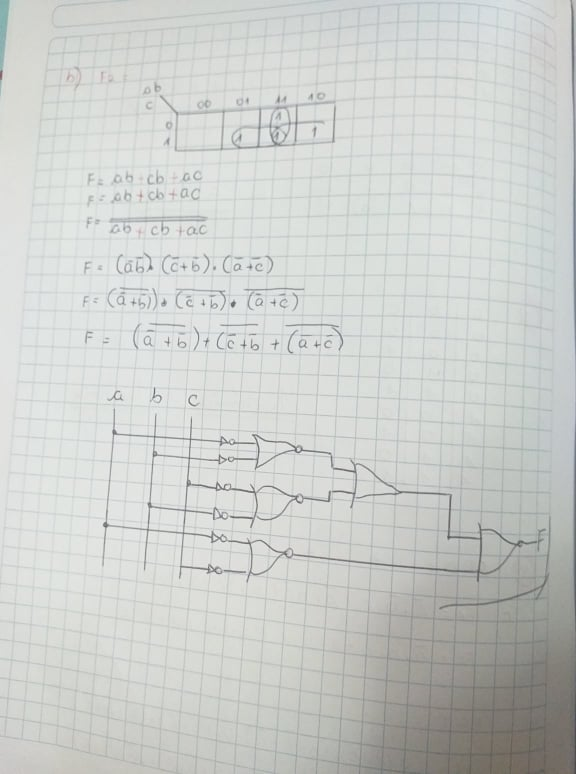 b) F2 =
ab
c 00 01 11 10
0 1
1 1 1 1
F = ab + cb + ac
F = ab + cb + ac
F = \overline{\overline{ab + cb + ac}}
F = (āb̄) · (c̄+b̄) · (ā+c̄)
F = (\overline{ā+b̄}) · \overline{(c̄+b̄)} · \overline{(ā+c̄)}
F = (\overline{ā+b̄}) + (\overline{c̄+b̄} + \overline{(ā+c̄)}
a b c
F